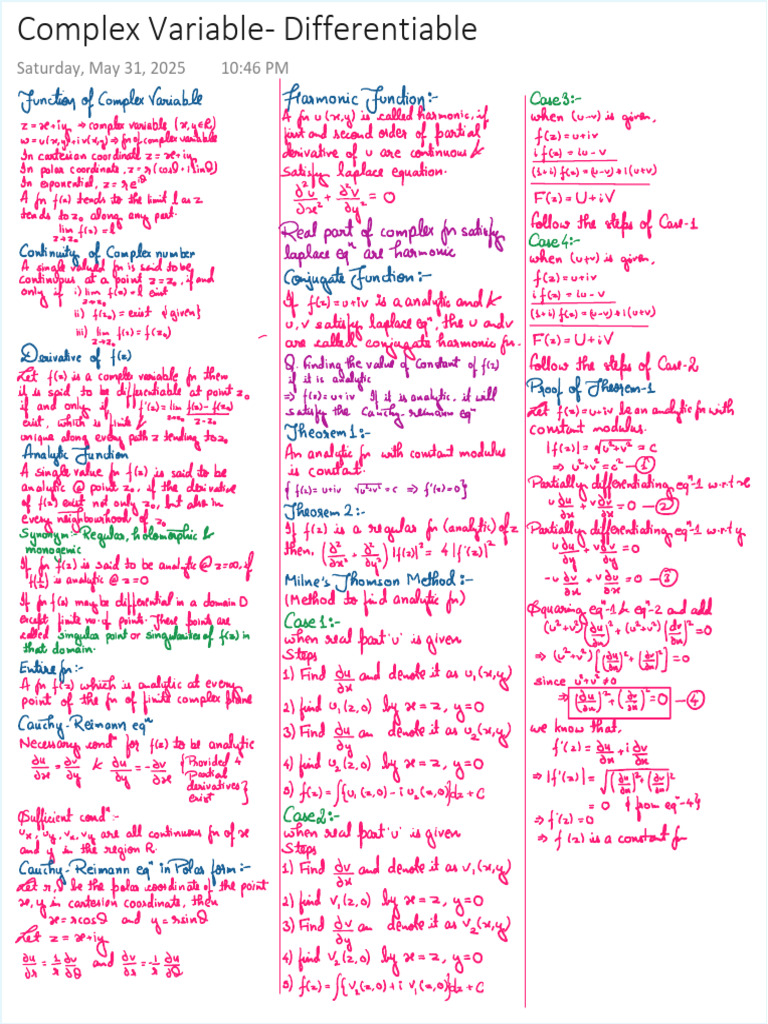 Complex Variable- Differentiable
Saturday, May 31, 2025 10:46 PM
Function of Complex Variable
z = x+iy → complex variable (x,y∈R)
w = u(x,y)+iv(x,y) ⇒ fn of complex variable
In cartesian coordinate z = x+iy
In polar coordinate, z = r(cosθ+isinθ)
In exponential, z = re^iθ
A fn f(z) tends to the limit l as z
tends to z₀ along any part.
lim f(z) = l
z→z₀
Continuity of Complex number
A single valued fn is said to be
continuous at a point z=z₀, if and
only if i) lim f(z) = l exist
z→z₀
ii) f(z₀) = exist {given}
iii) lim f(z) = f(z₀)
z→z₀
Derivative of f(z)
Let f(z) is a complex variable fn then
it is said to be differentiable at point z₀
if and only if f'(z) = lim f(z)-f(z₀)/z-z₀
z→z₀
exist, which is finite &
unique along every path z tending to z₀
Analytic Function
A single value fn f(z) is said to be
analytic @ point z₀, if the derivative
of f(z) exist not only z₀, but also in
every neighbourhood of z₀
Synonym:- Regular, holomorphic &
monogenic
If fn f(z) is said to be analytic @ z=∞, if
f(1/z) is analytic @ z=0
If fn f(z) may be differential in a domain D
except finite no. of point. These point are
called singular point or singularities of f(z) in
that domain.
Entire fn:-
A fn f(z) which is analytic at every
point of the fn of finite complex plane
Cauchy-Reimann eqⁿ
Necessary condⁿ for f(z) to be analytic
∂u/∂x = ∂v/∂y & ∂u/∂y = -∂v/∂x {Provided 4
Partial
derivatives}
exist
Sufficient condⁿ:-
uₓ, u_y, vₓ, v_y are all continuous fn of x
and y in the region R.
Cauchy-Reimann eqⁿ in Polar form:-
Let r, θ be the polar coordinate of the point
x, y in cartesion coordinate, then
x = rcosθ and y = rsinθ
Let z = x+iy
∂u/∂r = 1/r ∂v/∂θ and ∂v/∂r = -1/r ∂u/∂θ
Harmonic Function:-
A fn u(x,y) is called harmonic, if
first and second order of partial
derivative of u are continuous &
satisfy laplace equation.
∂²u/∂x² + ∂²v/∂y² = 0
Real part of complex fn satisfy
laplace eqⁿ are harmonic
Conjugate Function:-
If f(z) = u+iv is a analytic and &
u, v satisfy laplace eqⁿ, the u and v
are called conjugate harmonic fn.
Q. Finding the value of constant of f(z)
if it is analytic
⇒ f(z) = u+iv If it is analytic, it will
satisfy the Cauchy-reimann eqⁿ
Theorem 1:-
An analytic fn with constant modulus
is constant.
{f(z) = u+iv √u²+v² = c ⇒ f'(z)=0}
Theorem 2:-
If f(z) is a regular fn (analytic) of z
then, (∂²/∂x² + ∂²/∂y²) |f(z)|² = 4|f'(z)|²
Milne's Thomson Method:-
(Method to find analytic fn)
Case 1:-
when real part 'u' is given
Steps
1) Find ∂u/∂x and denote it as u₁(x,y)
2) find u₁(z,0) by x=z, y=0
3) Find ∂u/∂y an denote it as u₂(x,y)
4) find u₂(z,0) by x=z, y=0
5) f(z) = ∫{u₁(z,0) - i u₂(z,0)}dz + C
Case 2:-
when real part 'v' is given
Steps
1) Find ∂v/∂x and denote it as v₁(x,y)
2) find v₁(z,0) by x=z, y=0
3) Find ∂v/∂y an denote it as v₂(x,y)
4) find v₂(z,0) by x=z, y=0
5) f(z) = ∫{v₂(z,0) + i v₁(z,0)}dz + C
Case 3:-
when (u-v) is given,
f(z) = u+iv
i f(z) = iu-v
(1+i) f(z) = (u-v)+i(u+v)
F(z) = U+iV
follow the steps of Case-1
Case 4:-
when (u+v) is given,
f(z) = u+iv
i f(z) = iu-v
(1+i) f(z) = (u-v)+i(u+v)
F(z) = U+iV
follow the steps of Case-2
Proof of Theorem-1
Let f(z) = u+iv be an analytic fn with
constant modulus.
|f(z)| = √u²+v² = c
⇒ u²+v² = c² —①
Partially differentiating eqⁿ-1 w.r.t x
u ∂u/∂x + v ∂v/∂x = 0 —②
Partially differentiating eqⁿ-1 w.r.t y
u ∂u/∂y + v ∂v/∂y = 0
-u ∂v/∂x + v ∂u/∂x = 0 —③
Squaring eqⁿ-1 & eqⁿ-2 and add
(u²+v²)(∂u/∂x)² + (u²+v²)(∂v/∂x)² = 0
⇒ (u²+v²)[(∂u/∂x)² + (∂v/∂x)²] = 0
since u²+v² ≠ 0
⇒ (∂u/∂x)² + (∂v/∂x)² = 0 —④
we know that,
f'(z) = ∂u/∂x + i ∂v/∂x
⇒ |f'(z)| = √(∂u/∂x)² + (∂v/∂x)²
= 0 {from eqⁿ-4}
⇒ f'(z) = 0
⇒ f(z) is a constant fn